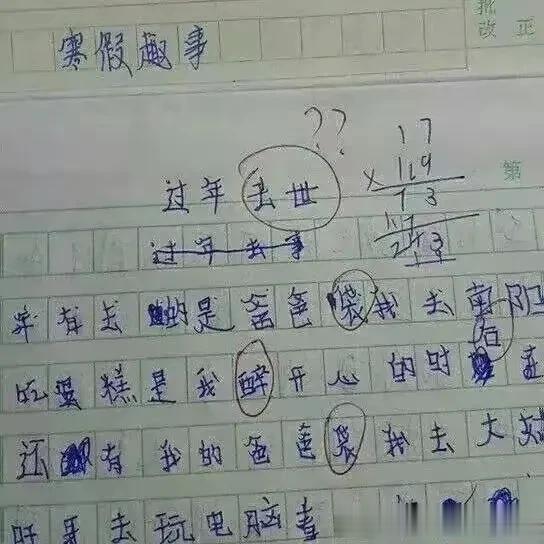 批
改正
寒假趣事
??
17
过年去世
× 119
第
73
17
过年去事
243
年有去的是爸爸袋我去南阳
后
吃蛋糕是我醉开心的时
还有我的爸爸袋我去大
去玩电脑